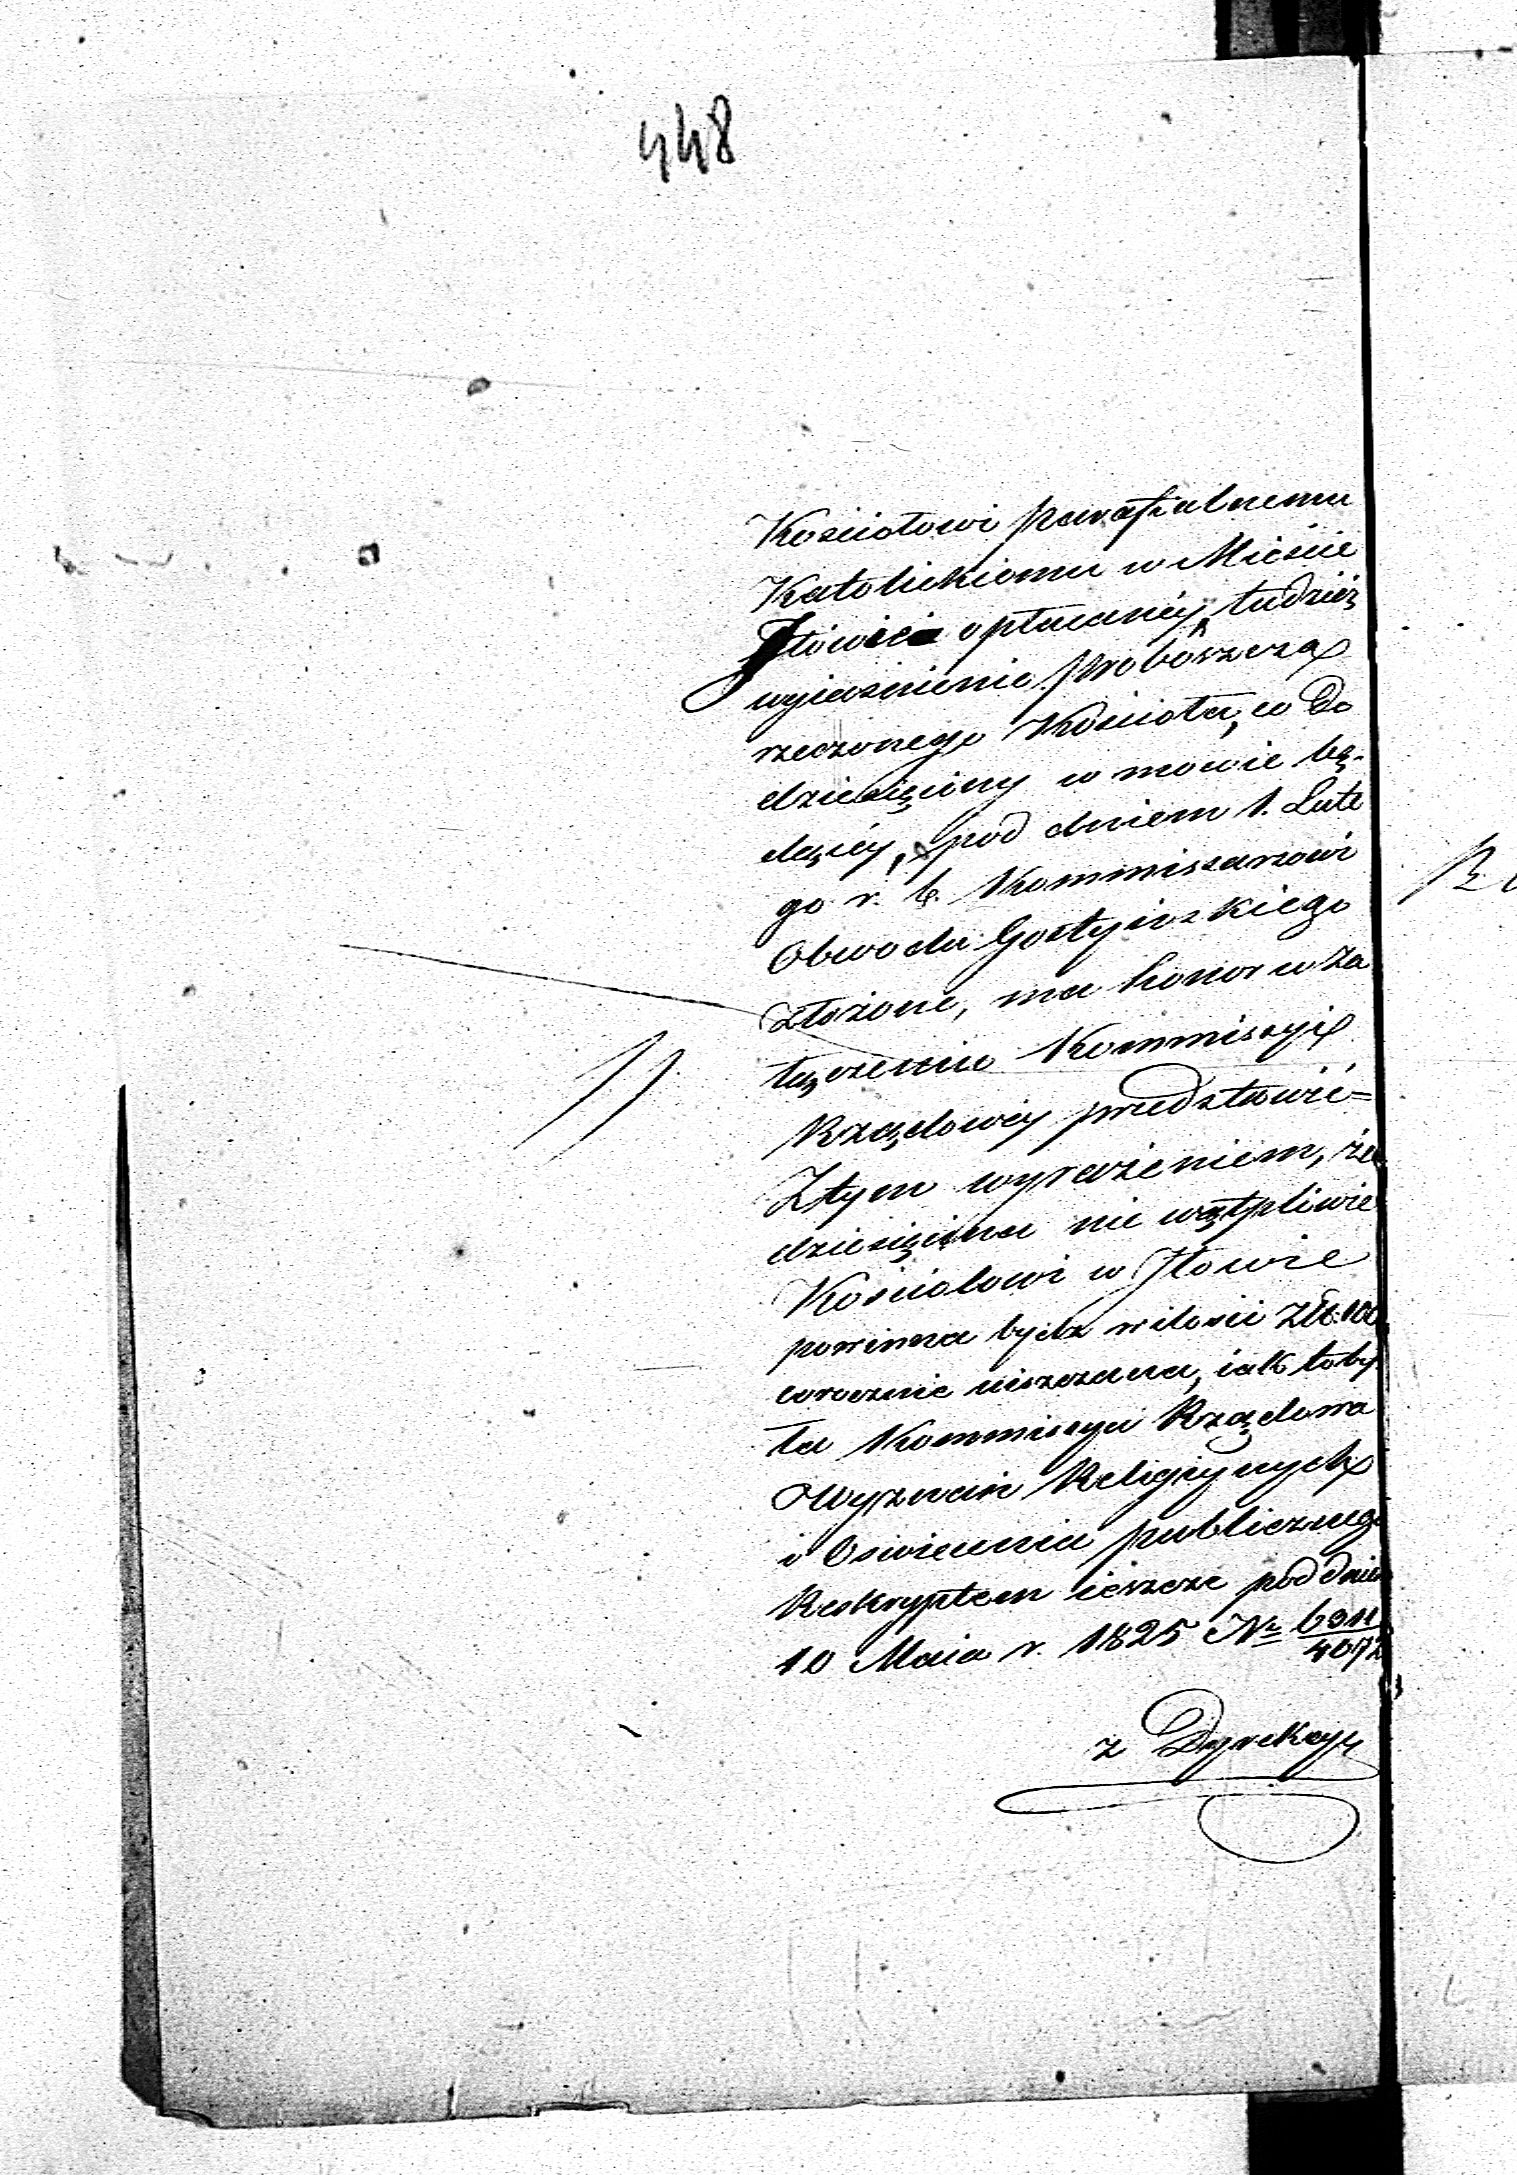 448
Kościołowi parafialnemu
Katolickiemu w Mieście
Iłowie opłacanéy, tudzież
wyiaśnienie proboszcza
rzeczonego Kościoła, co do
dziesięciny w mowie bę-
dącéy, pod dniem 1. Lute
go r. b. Kommissarzowi
Obwodu Gostyńskiego
złożone, ma honor w za
łączeniu Kommissyi
Rządowéy przedstawić =
Z tym wyrażeniem, że
dziesięcina nie wątpliwie
Kościołowi w Iłowie
powinna bydź w ilości Złt. 100
corocznie uiszczana, iak to by
ła Kommissya Rządowa
Wyznań Religiynych
i Oświecenia publicznego
Reskryptem ieszcze pod dniem
10 Maia r. 1825 Nr 6911/4072
z Dyrekcyi